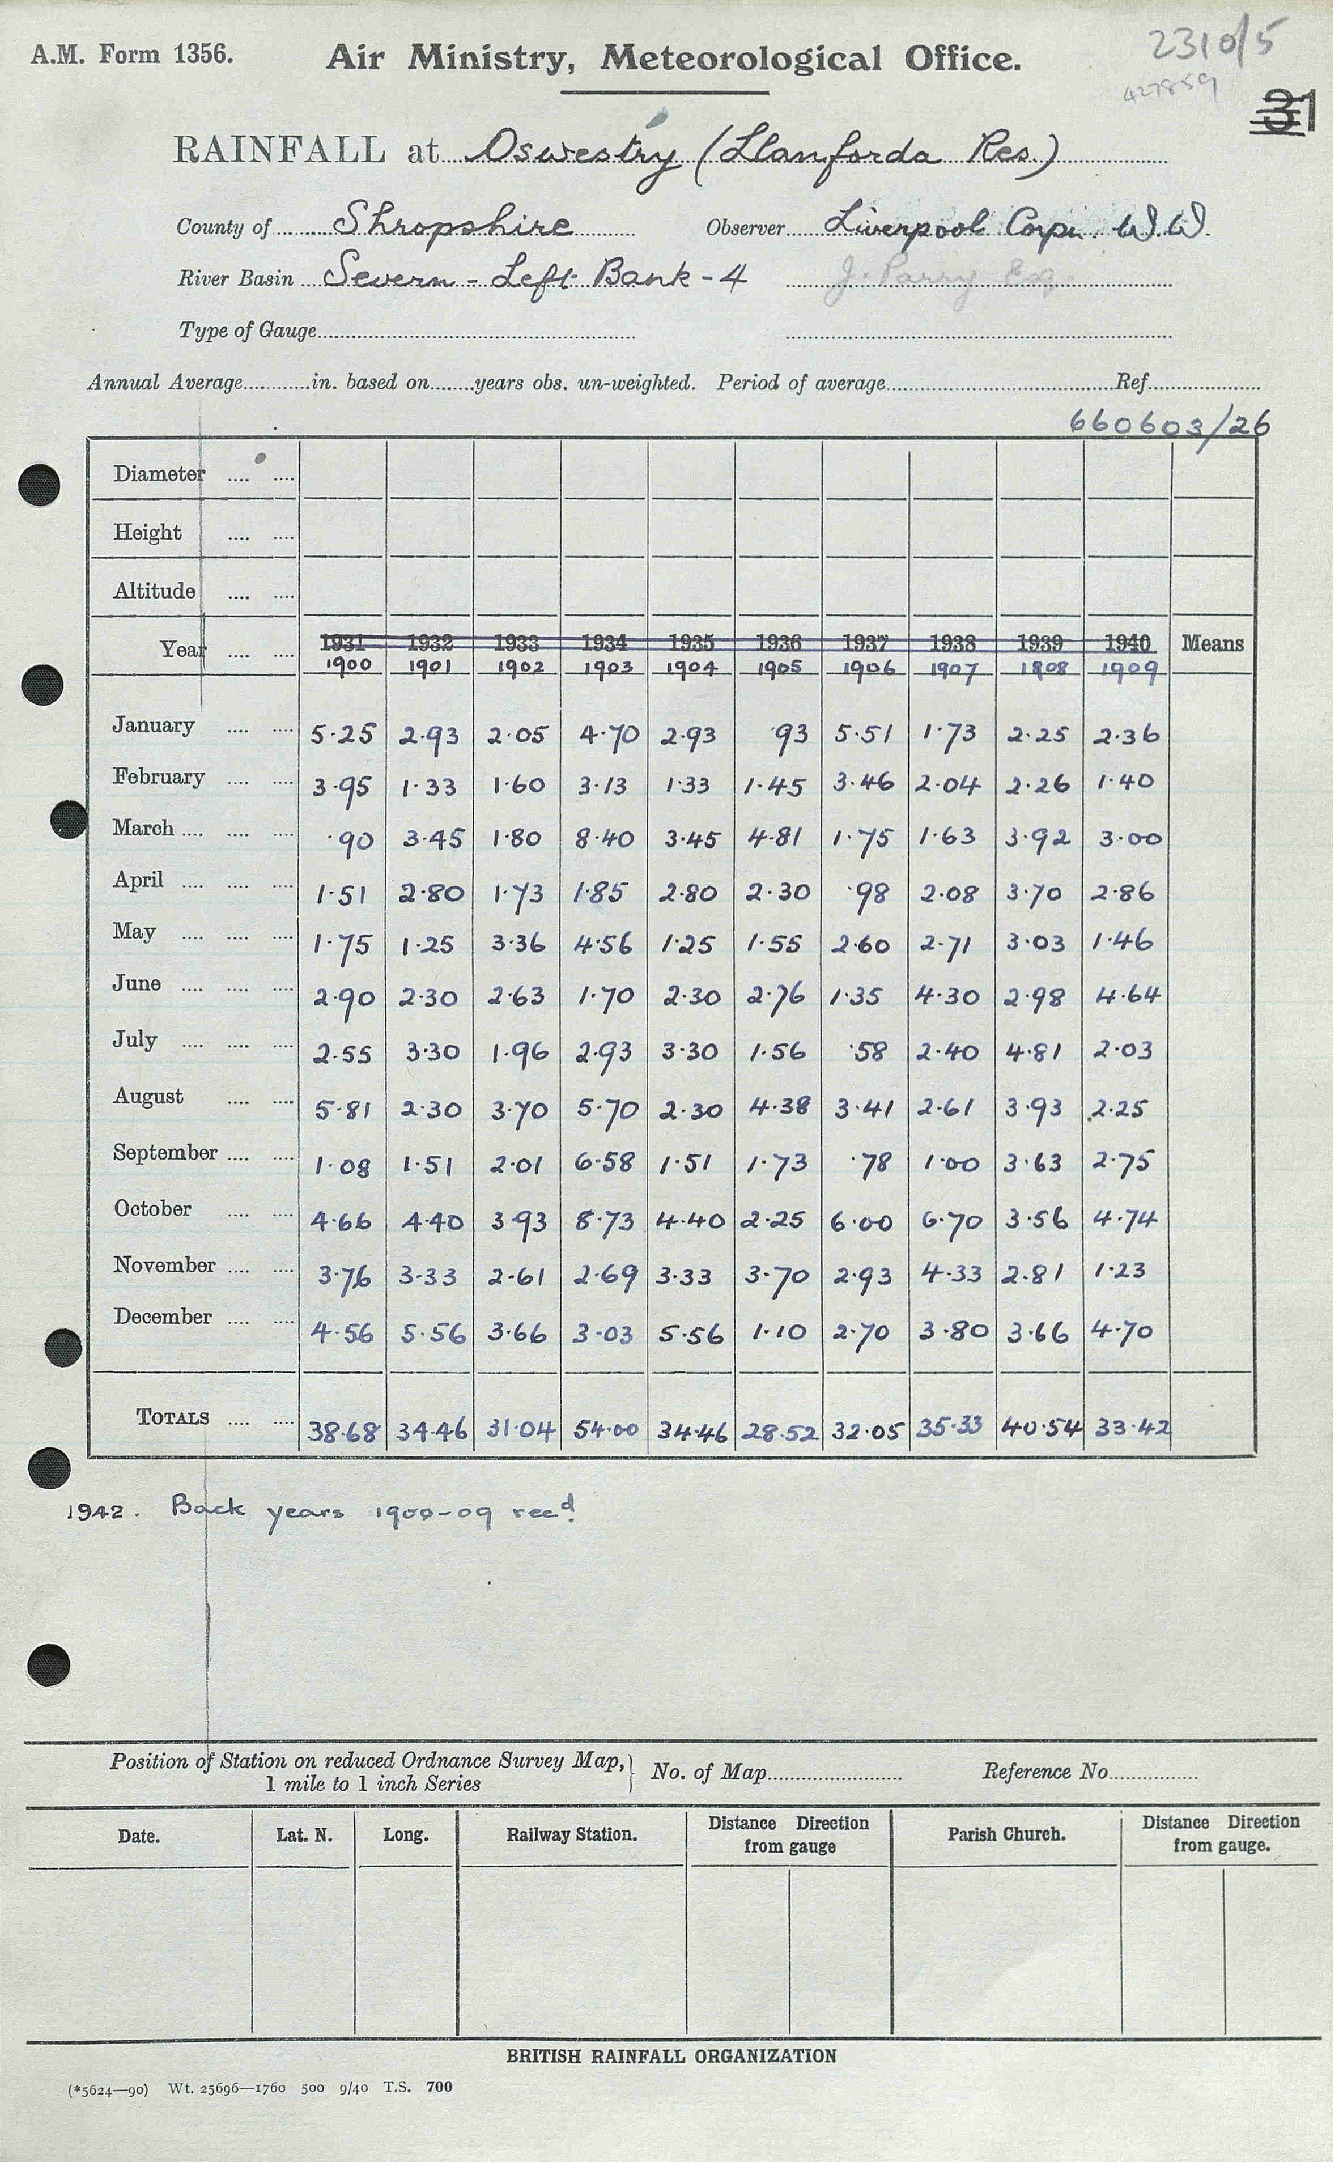 2310/5
A.M. Form 1356. Air Ministry, Meteorological Office.
427859
31
RAINFALL at Oswestry (Llanforda Res.)
County of Shropshire Observer Liverpool Corpn. W.W.
River Basin Severn - Left Bank - 4 J. Parry Esq.
Type of Gauge
Annual Average in. based on years obs. un-weighted. Period of average Ref
660603/26
Diameter
Height
Altitude
Year 1931 1932 1933 1934 1935 1936 1937 1938 1939 1940 Means
1900 1901 1902 1903 1904 1905 1906 1907 1908 1909
January 5.25 2.93 2.05 4.70 2.93 .93 5.51 1.73 2.25 2.36
February 3.95 1.33 1.60 3.13 1.33 1.45 3.46 2.04 2.26 1.40
March .90 3.45 1.80 8.40 3.45 4.81 1.75 1.63 3.92 3.00
April 1.51 2.80 1.73 1.85 2.80 2.30 .98 2.08 3.70 2.86
May 1.75 1.25 3.36 4.56 1.25 1.55 2.60 2.71 3.03 1.46
June 2.90 2.30 2.63 1.70 2.30 2.76 1.35 4.30 2.98 4.64
July 2.55 3.30 1.96 2.93 3.30 1.56 .58 2.40 4.81 2.03
August 5.81 2.30 3.70 5.70 2.30 4.38 3.41 2.61 3.93 2.25
September 1.08 1.51 2.01 6.58 1.51 1.73 .78 1.00 3.63 2.75
October 4.66 4.40 3.93 8.73 4.40 2.25 6.00 6.70 3.56 4.74
November 3.76 3.33 2.61 2.69 3.33 3.70 2.93 4.33 2.81 1.23
December 4.56 5.56 3.66 3.03 5.56 1.10 2.70 3.80 3.66 4.70
TOTALS 38.68 34.46 31.04 54.00 34.46 28.52 32.05 35.33 40.54 33.42
1942. Back years 1900-09 recd.
Position of Station on reduced Ordnance Survey Map, No. of Map Reference No
1 mile to 1 inch Series
Date. Lat. N. Long. Railway Station. Distance Direction from gauge Parish Church. Distance Direction from gauge.
BRITISH RAINFALL ORGANIZATION
(*5624—90) Wt. 25696—1760 500 9/40 T.S. 700